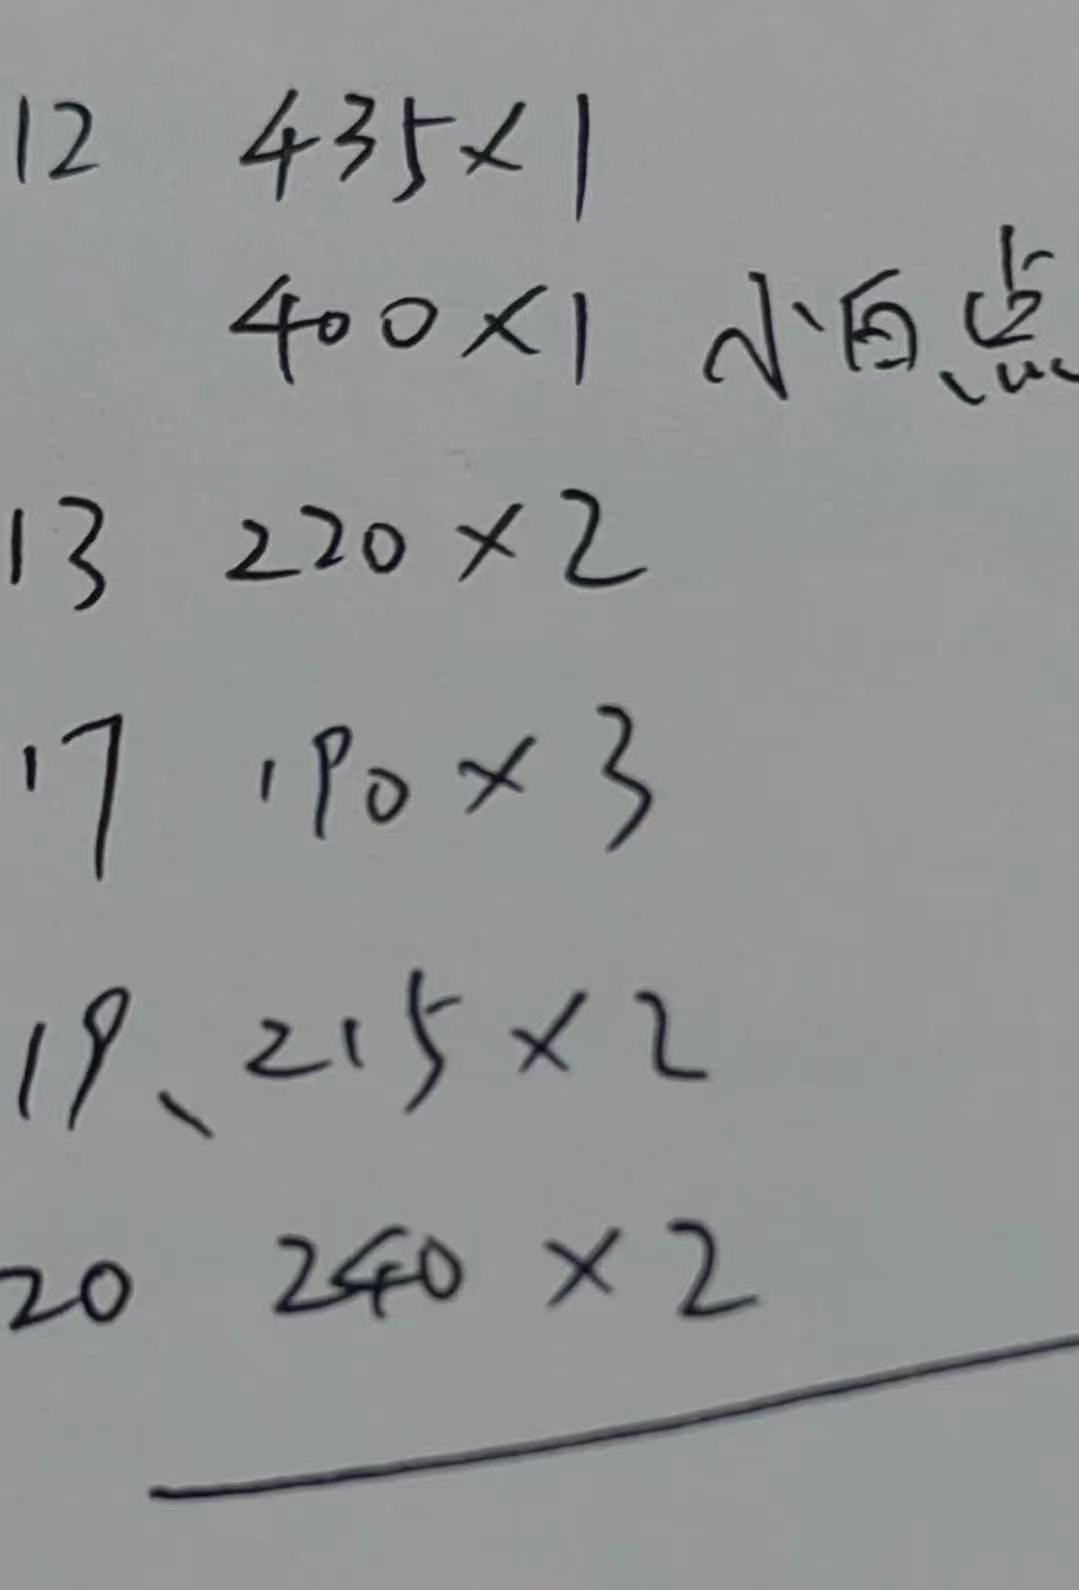 12 435×1
400×1 小白点
13 220×2
17 190×3
19、215×2
20 240×2